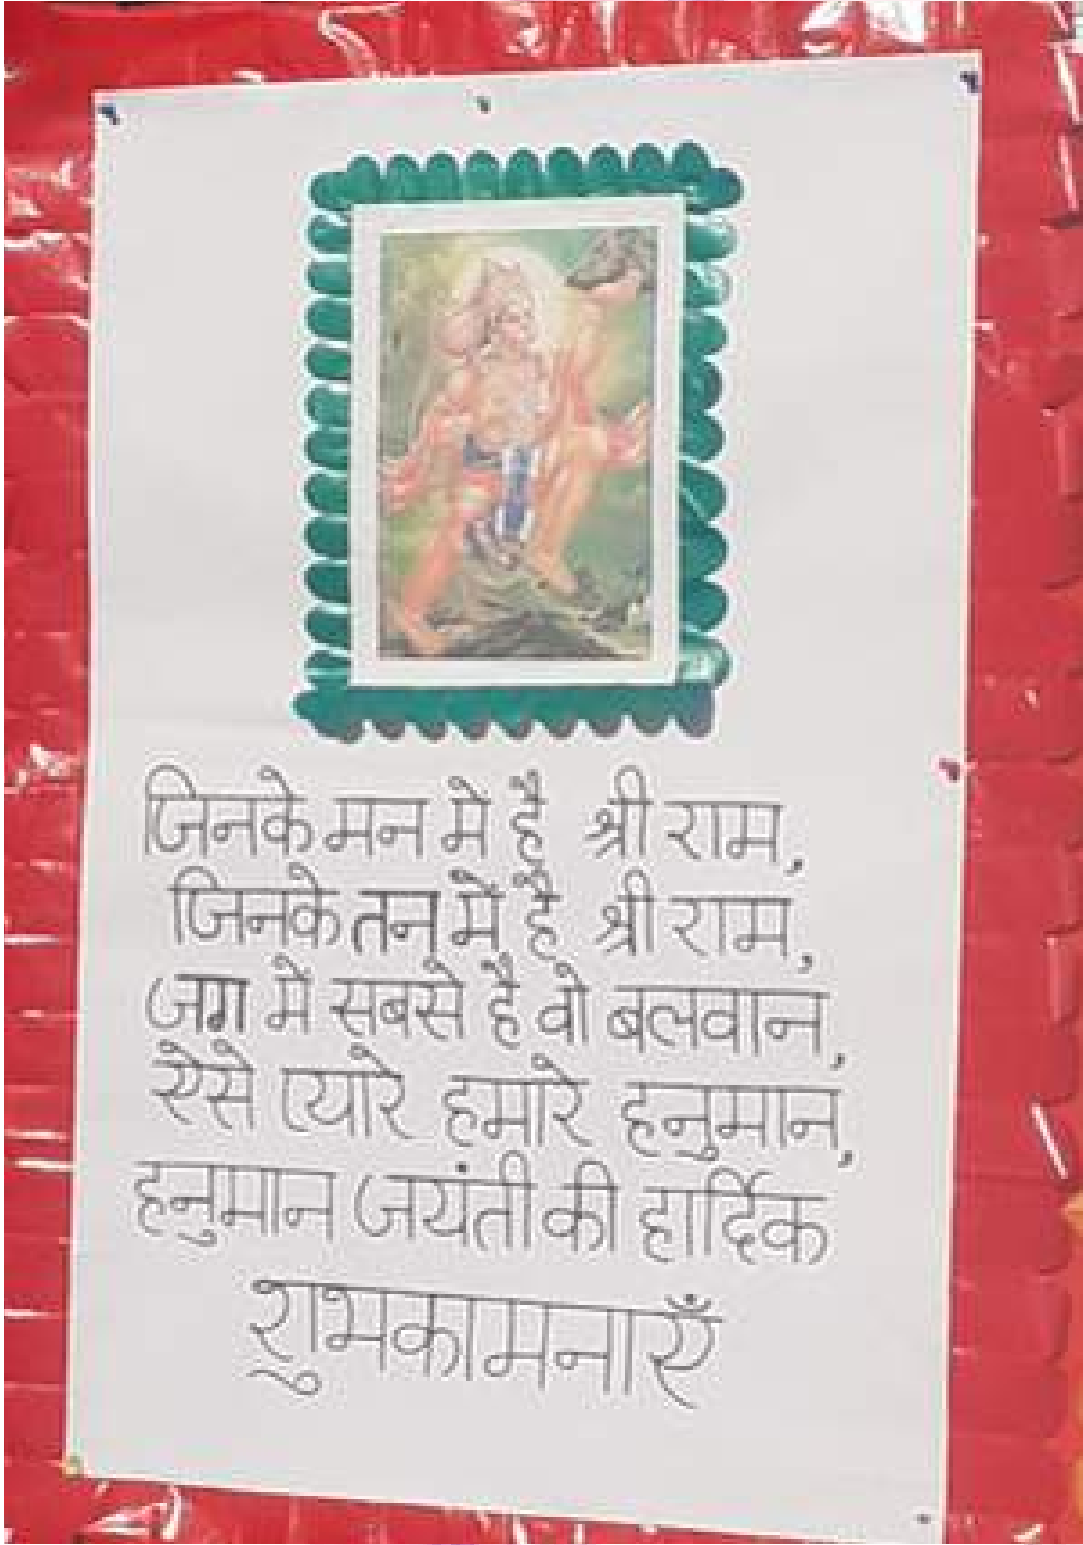 जिनके मन में हैं श्री राम,
जिनके तन में हैं श्री राम,
जग में सबसे हैं वो बलवान,
ऐसे प्यारे हमारे हनुमान,
हनुमान जयंती की हार्दिक
शुभकामनाएँ